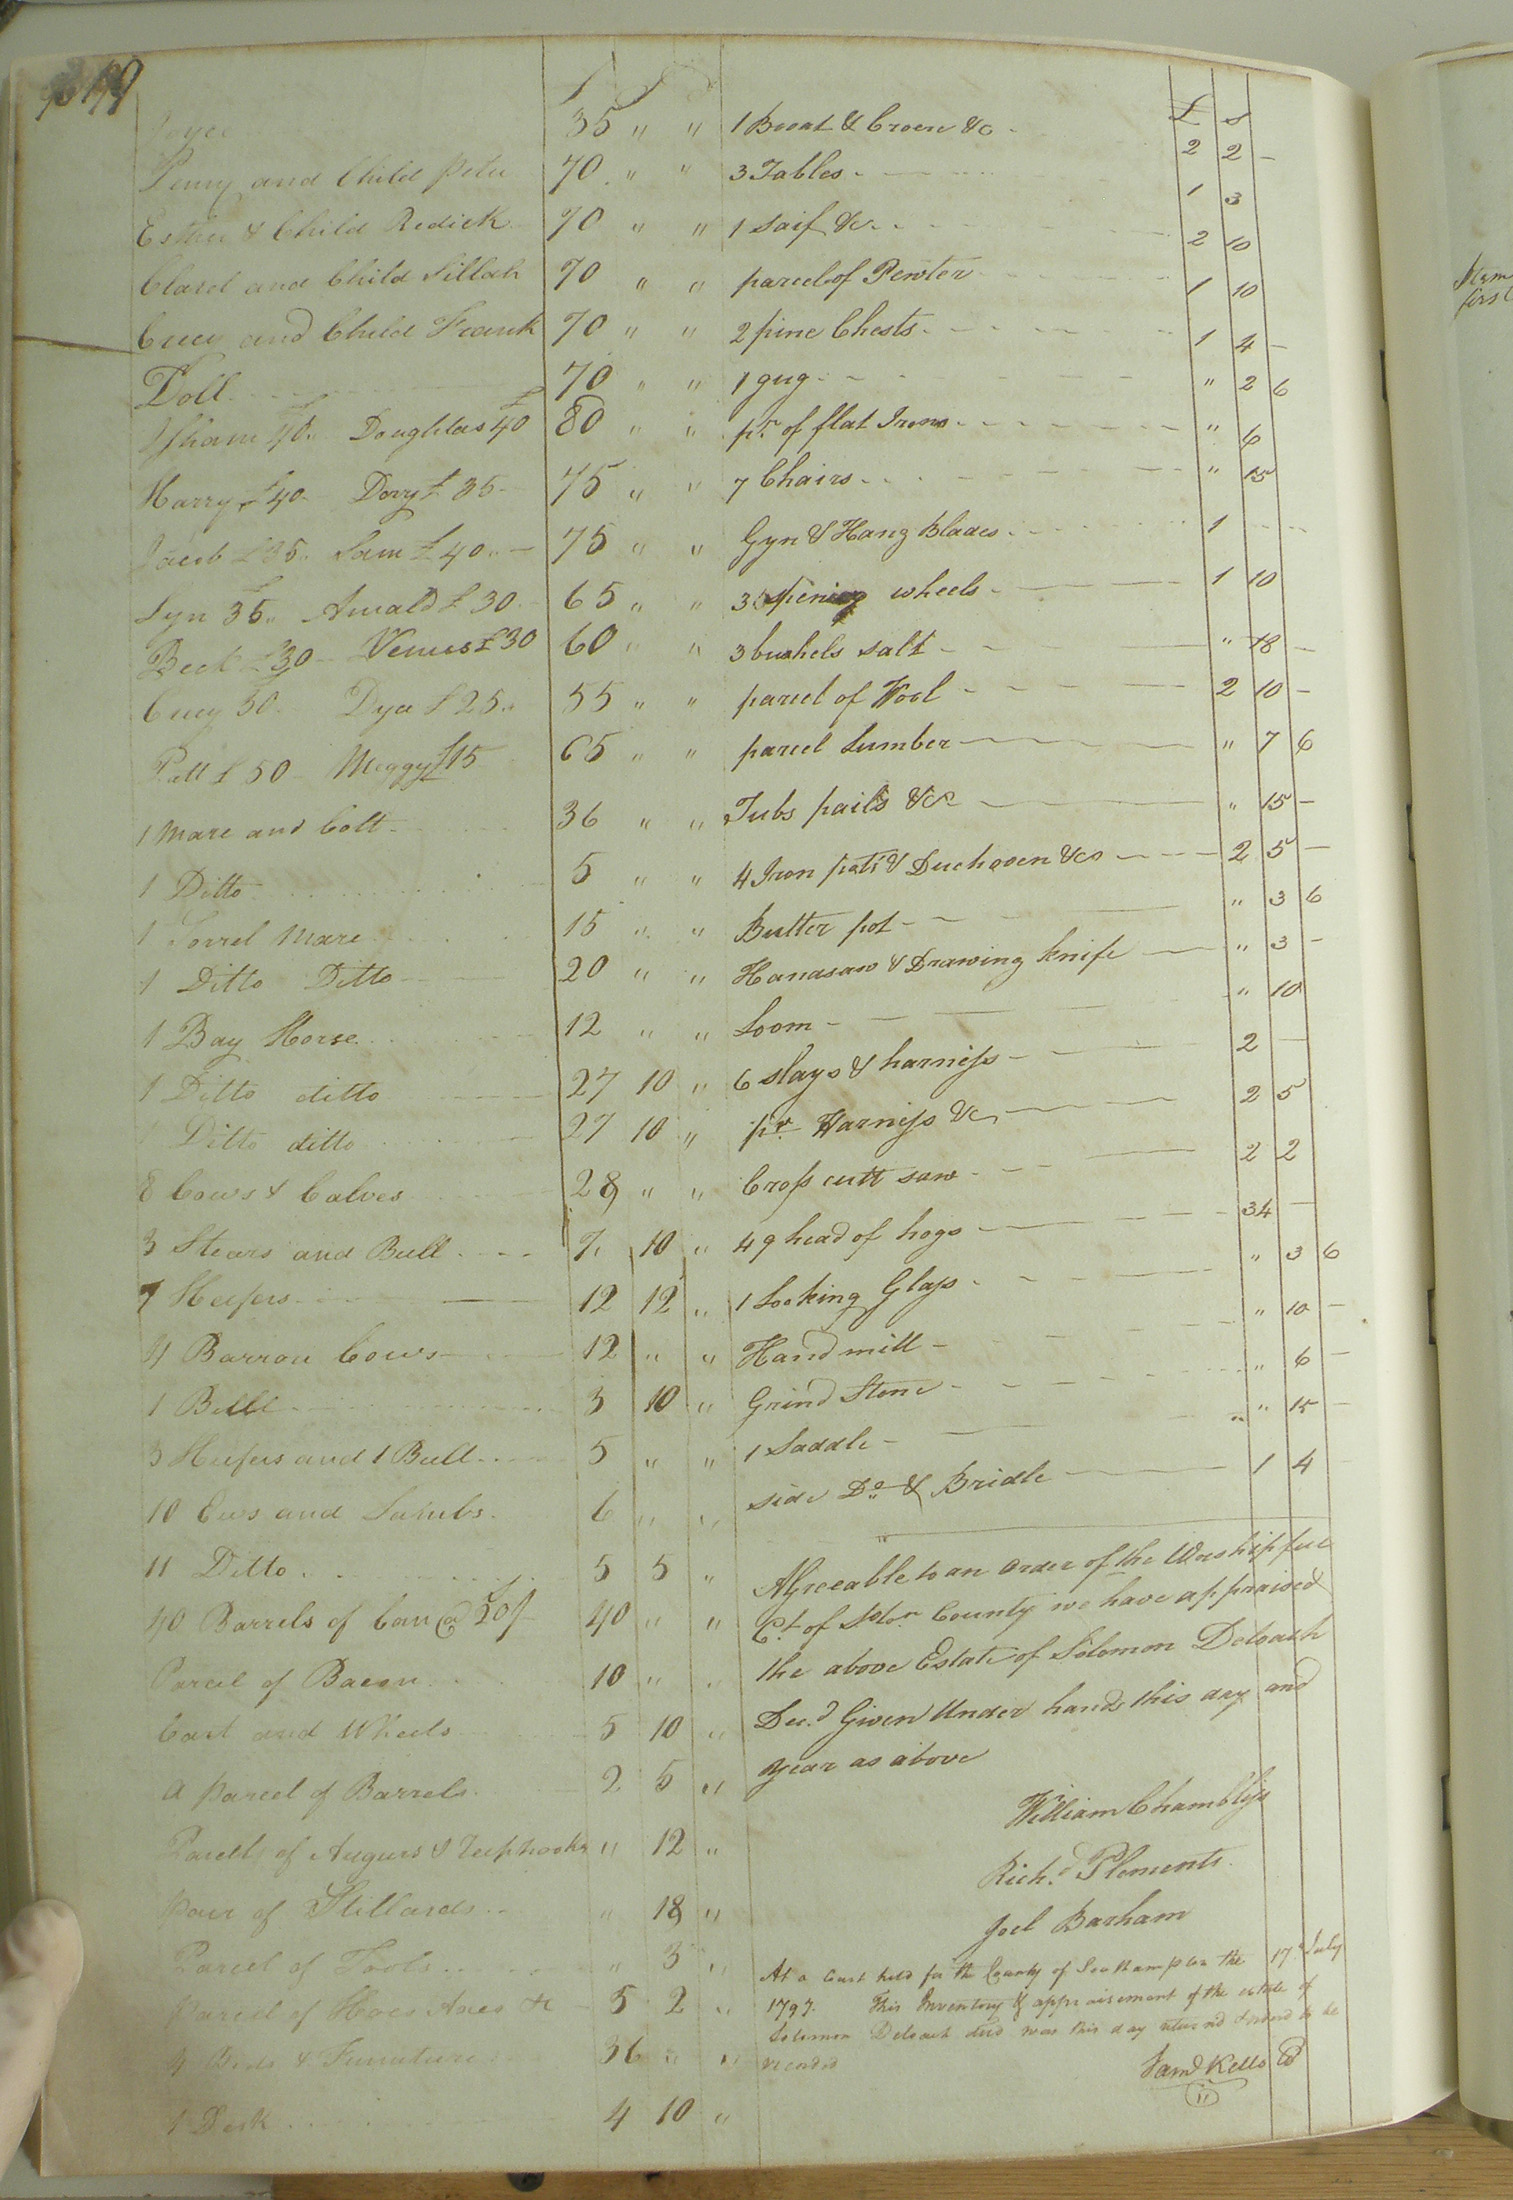 £ s
35 " "
Penny and Child Peter 70 " "
Esther & Child Redick 70 " "
and Child 70 " "
and Child Frank 70 " "
Doll 70 " "
Isham £40 Doughlas £40 80 " "
Harry £40 Davy £35 75 " "
Jacob £35 Sam £40 75 " "
Syn 35 Arnald £30 65 " "
Beck £30 Venus £30 60 " "
30 Dyce £25 55 " "
Patt £50 Meggy £15 65 " "
1 Mare and Colt 36 " "
1 Ditto 5 " "
1 Sorrel Mare 15 " "
1 Ditto Ditto 20 " "
1 Bay Horse 12 " "
1 Ditto ditto 27 10 "
Ditto ditto 27 10 "
8 Cows & Calves 28 " "
3 Stears and Bull 7 10 "
7 Heifers 12 12 "
4 Barron Cows 12 " "
1 Bull 3 10 "
3 Heifers and 1 Bull 5 " "
10 Ews and Lambs 6 " "
11 Ditto 5 5 "
40 Barrels of Corn @ 20/ 40 " "
Parcel of Bacon 10 " "
Cart and Wheels 5 10 "
A parcel of Barrels 2 5 "
Parcell of Augurs & Reephooks " 12 "
Pair of Stillards " 18 "
Parcel of Tools " 3 "
Parcel of Hoes Axes &c 5 2 "
4 Beds & Furniture 36 " "
1 Desk 4 10 "
£ s
1 &c 2 2 -
3 Tables 1 3
1 Saif &c 2 10
parcel of Pewter 1 10
2 pine Chests 1 4 -
1 gug " 2 6
pr. of flat Irons " 6
7 Chairs " 15
Gyn & Hang Blades 1
3 spening wheels 1 10
3 bushels salt " 18 -
parcel of Wool 2 10 -
parcel Lumber " 7 6
Tubs pails &c " 15 -
4 Iron pots & Duchoven &c 2 5 -
Butter pot " 3 6
Handsaw & Drawing knife " 3 -
Loom " 10
6 slays & harness 2 -
pr. Harness &c 2 5
Cross cutt saw 2 2
49 head of hogs 34 -
1 Looking Glass " 3 6
Hand mill " 10 -
Grind Stone " 6 -
1 Saddle " 15 -
side Do. & Bridle 1 4
AGreeable to an order of the Worshipfull
Ct. of County we have appraised
the above Estate of Solomon Deloach
Decd. Given Under hands this day and
year as above
William Chambliss
Richd. Clements
Joel Barham
At a Court held for the County of Southampton the 17th July
1797. This Inventory & appraisement of the estate of
Solomon Deloach decd was this day returnd & ordered to be
recorded
Saml Kello